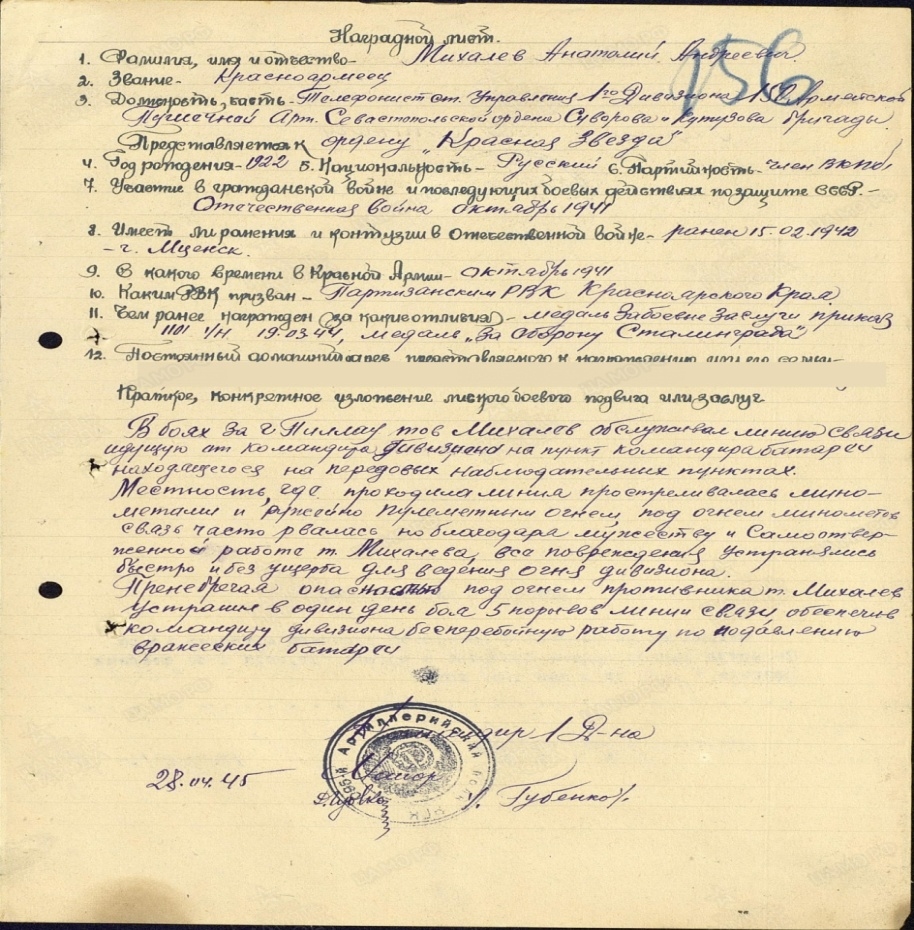 Наградной лист.
1. Фамилия, имя и отчество - Михалев Анатолий Андреевич
2. Звание - Красноармеец
3. Должность, часть - Телефонист от. Управления 1го Дивизиона 152 Армейской
Пушечной Арт. Севастопольской ордена Суворова и Кутузова бригады.
Представляется к ордену „Красная Звезда"
4. Год рождения - 1922 5. Национальность - Русский 6. Партийность - член ВКП(б)
7. Участие в гражданской войне и последующих боевых действиях по защите СССР. -
Отечественная война октябрь 1941
8. Имеет ли ранения и контузии в Отечественной войне - ранен 15.02.1942
- г. Мценск.
9. С какого времени в Красной Армии - октябрь 1941
10. Каким РВК призван - Партизанским РВК Красноярского Края
11. Чем ранее награжден (за какие отличия) - медаль За боевые Заслуги приказ
1101 1/н 19.03.44, медаль „За Оборону Сталинграда"
12. Постоянный домашний адрес представляемого к награждению или его семьи -
Краткое, конкретное изложение личного боевого подвига или заслуг
В боях за г. Пиллау тов Михалев обслуживал линию связи
идущую от командира дивизиона на пункт командира батареи
находящегося на передовых наблюдательных пунктах.
Местность, где проходила линия простреливалась мино-
метами и ружейно пулеметным огнем, под огнем минометов
связь часто рвалась, но благодаря мужеству и Самоотвер-
женной работе т. Михалева, все повреждения устранялись
быстро и без ущерба для ведения огня дивизиона.
Пренебрегая опасностью под огнем противника т. Михалев
устранил в один день боя 5 порывов линии связи обеспечив
командиру дивизиона бесперебойную работу по подавлению
вражеских батарей
156
Командир 1 Д-на
Артиллерийский
28.04.45
Майор
/. Губенко/.